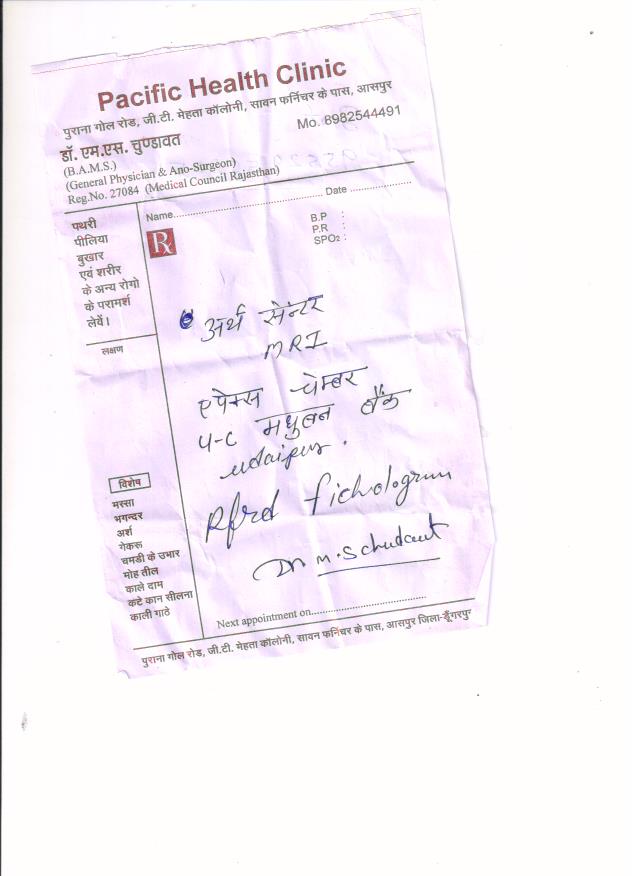 Pacific Health Clinic
पुराना गोल रोड, जी.टी. मेहता कॉलोनी, सावन फर्निचर के पास, आसपुर
डॉ. एम.एस. चुण्डावत
Mo. 8982544491
(B.A.M.S.)
(General Physician & Ano-Surgeon)
Reg.No. 27084 (Medical Council Rajasthan)
Name........................ Date ...................
पथरी
पीलिया
बुखार
एवं शरीर
के अन्य रोगो
के परामर्श
लेवें।
लक्षण
Rx
B.P :
P.R :
SPO2 :
अर्थ सेन्टर
MRI
एपेक्स चेम्बर
4-C मधुबन बैंक
udaipur.
Rfrd fichologram
Dr M.S chudawt
विशेष
मस्सा
भगन्दर
अर्श
गेकरू
चमडी के उभार
मोह तील
काले दाम
कटे कान सीलना
काली गाठे
Next appointment on.............................
पुराना गोल रोड, जी.टी. मेहता कॉलोनी, सावन फर्निचर के पास, आसपुर जिला-डूँगरपुर